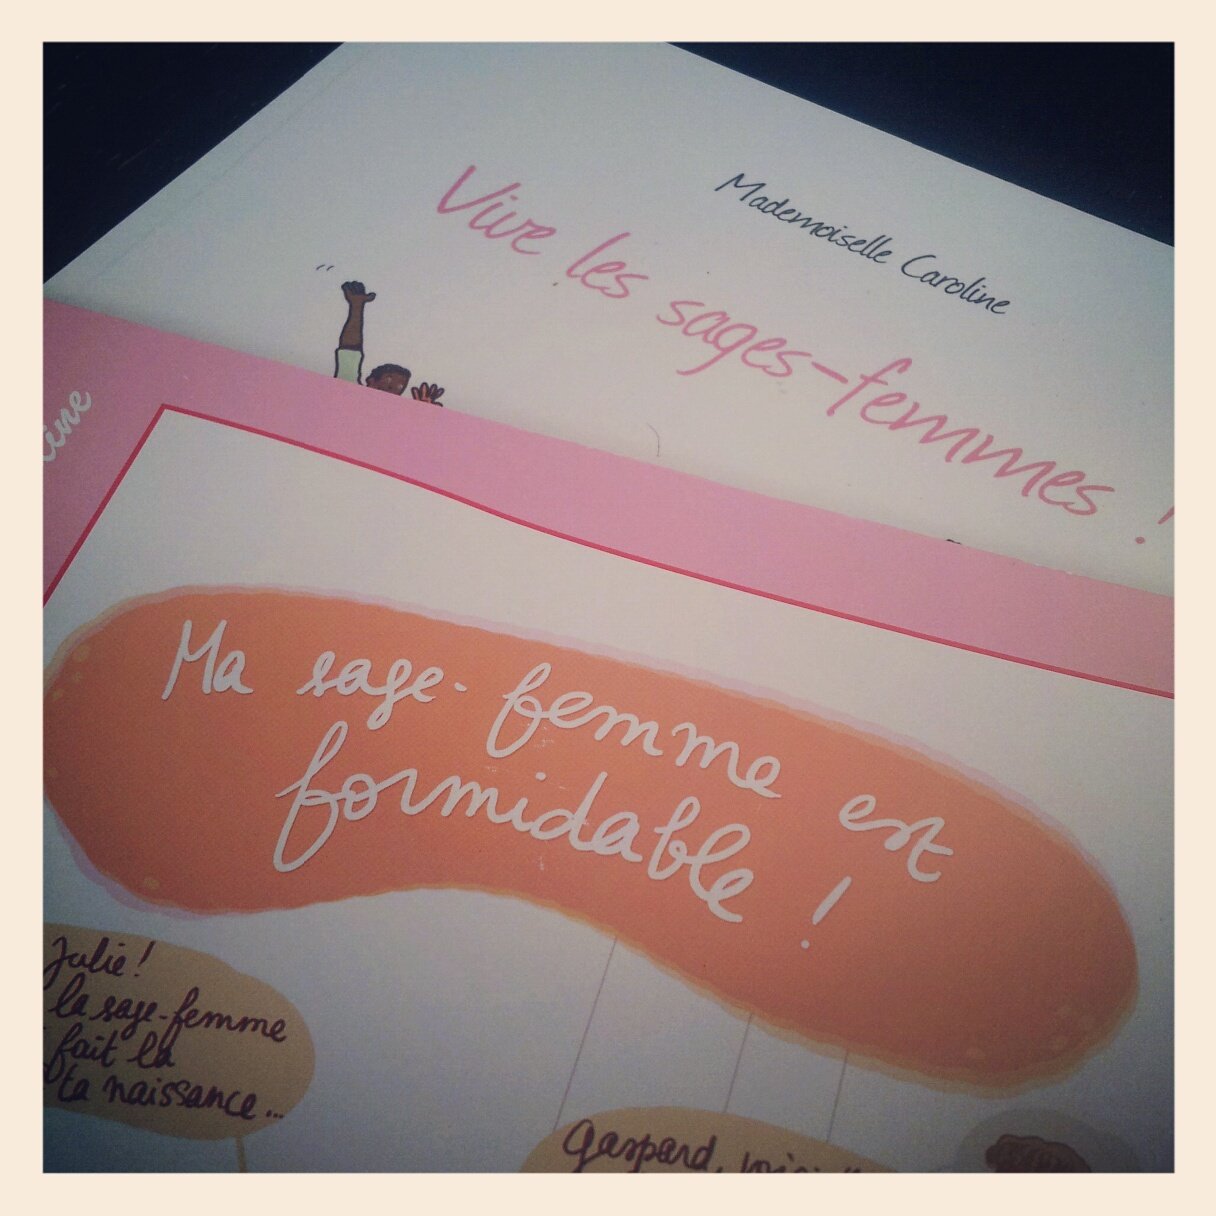 Mademoiselle Caroline
Vive les sages-femmes !
Ma sage-femme est
formidable !
Julie!
la sage-femme
fait la
naissance...
Gaspard,